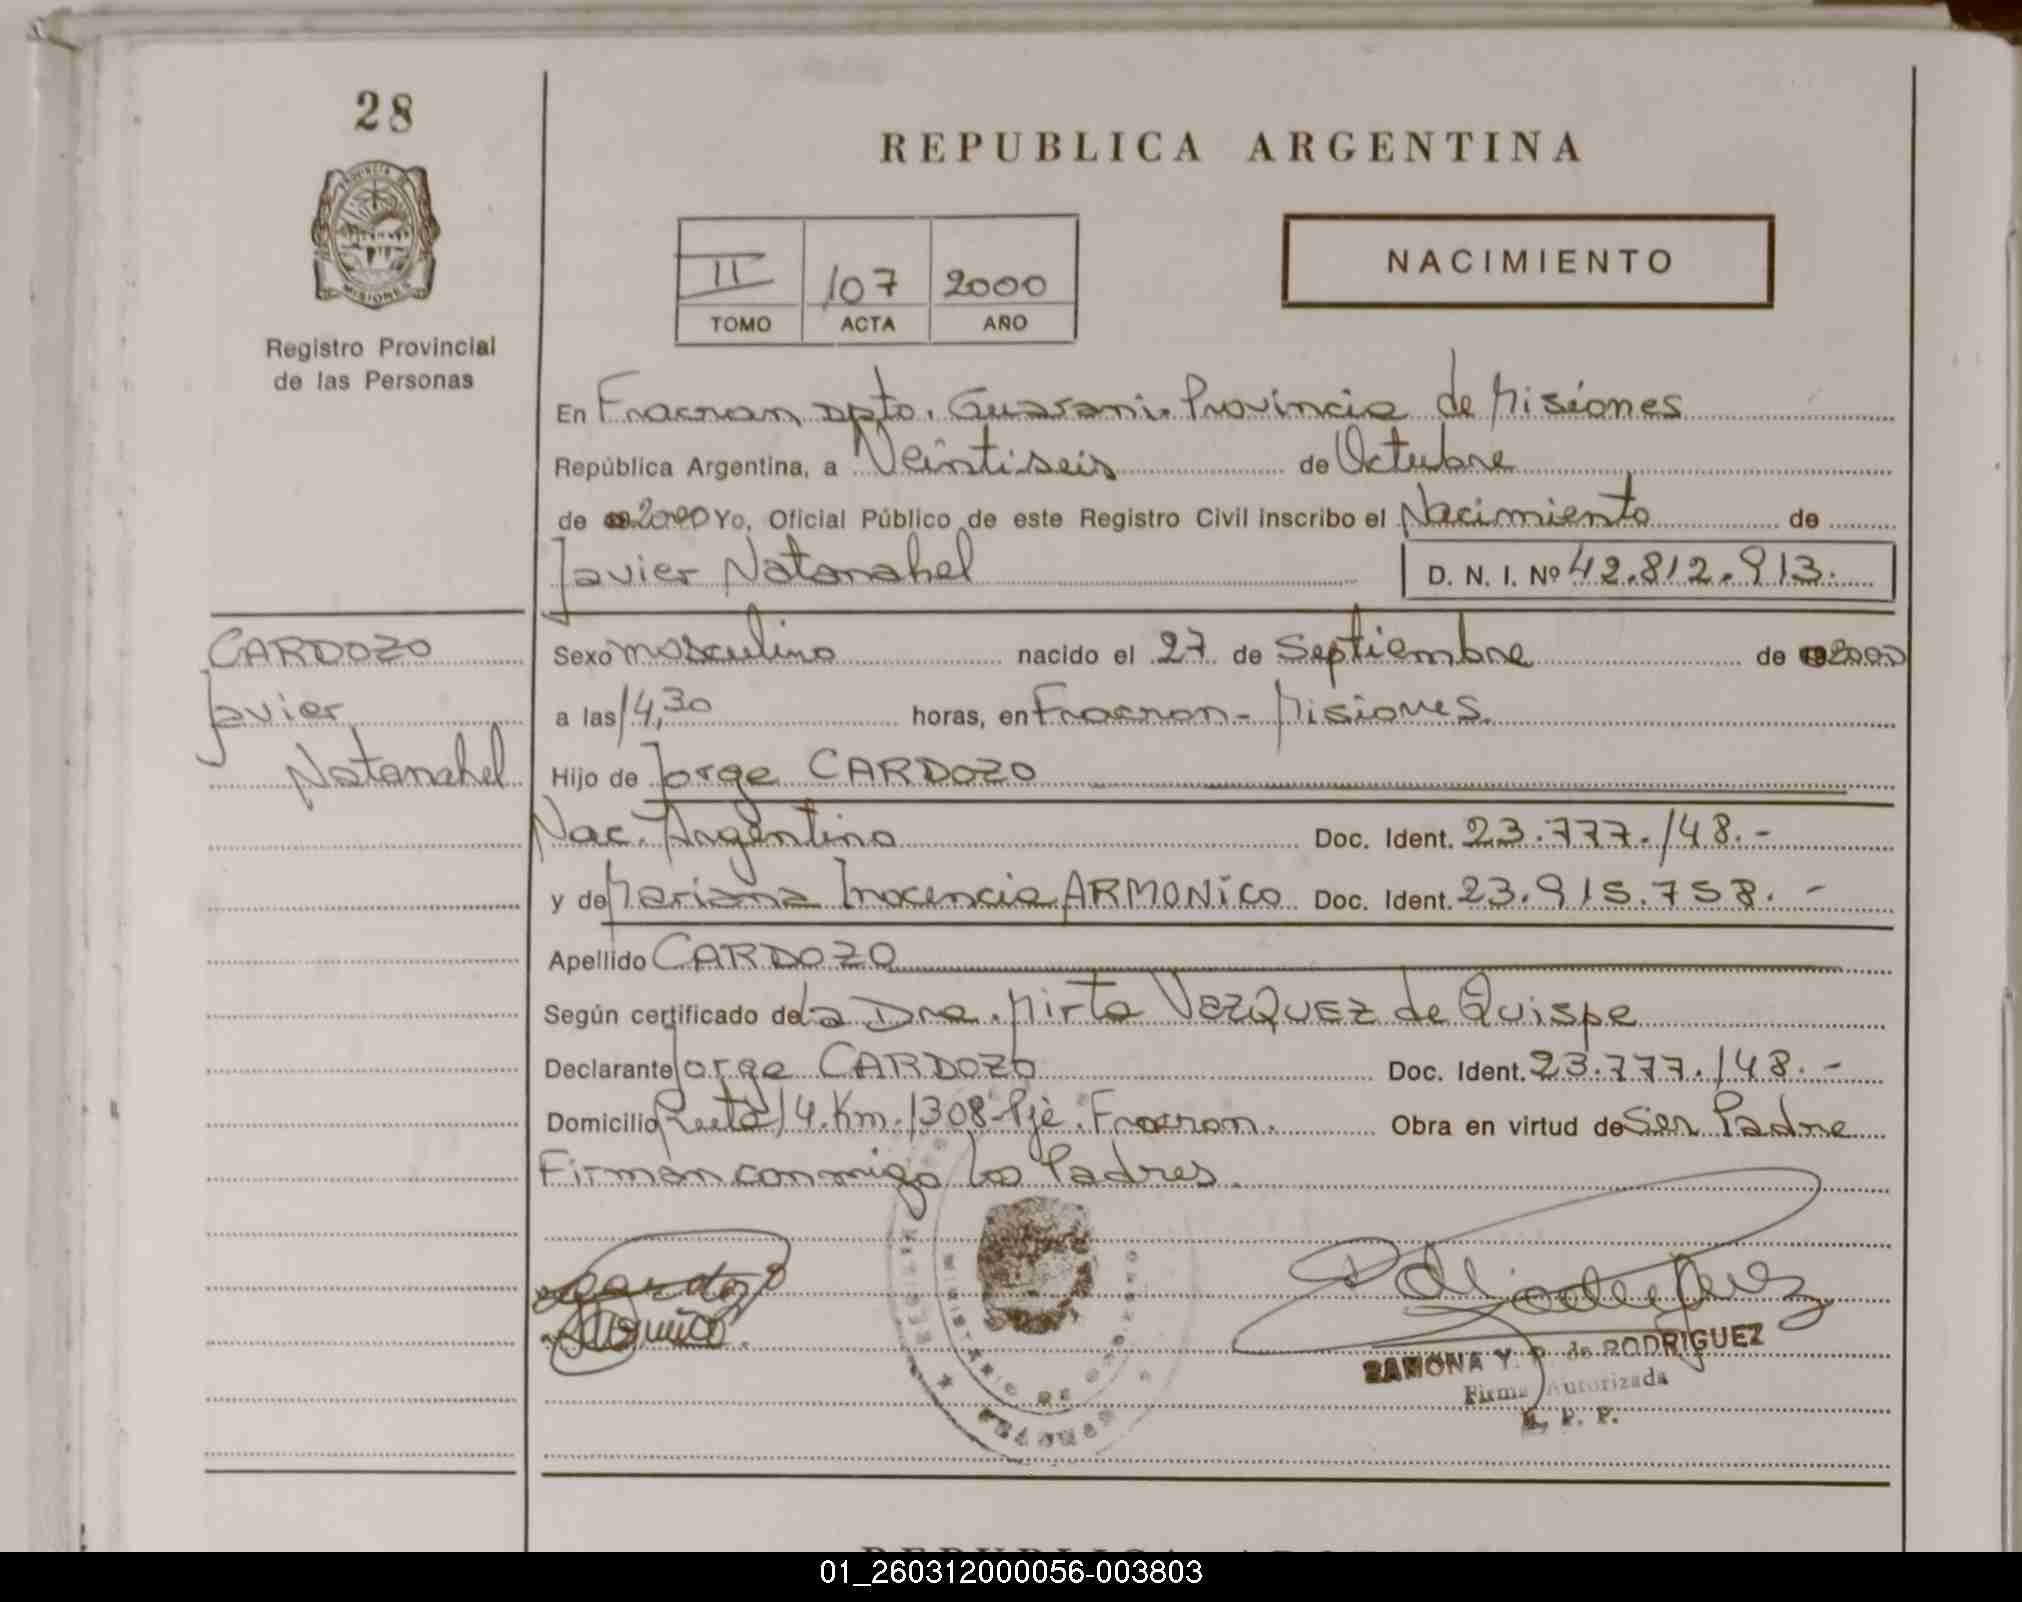 28
REPUBLICA ARGENTINA
PROVINCIA DE MISIONES
Registro Provincial
de las Personas
II 107 2000
TOMO ACTA AÑO
NACIMIENTO
En Fracran dpto. Guarani. Provincia de Misiones
República Argentina, a Veintiseis de Octubre
de 2000 Yo, Oficial Público de este Registro Civil inscribo el Nacimiento de
Javier Natanahel D. N. I. Nº 42.812.913.
CARDOZO
Javier
Natanahel
Sexo masculino nacido el 27 de Septiembre de 2000
a las 14,30 horas, en Fracran - Misiones
Hijo de Jorge CARDOZO
Nac. Argentino Doc. Ident. 23.777.148.-
y de Mariana Inocencia ARMONICO Doc. Ident. 23.915.758.-
Apellido CARDOZO
Según certificado de la Dra. Mirta VEZQUEZ de Quispe
Declarante Jorge CARDOZO Doc. Ident. 23.777.148.-
Domicilio Ruta 14. Km. 1308-Pje. Fracran. Obra en virtud de Ser Padre
Firman conmigo los Padres.
MINISTERIO DE GOBIERNO
RAMONA Y. de RODRIGUEZ
Firma Autorizada
R. P. P.
REPUBLICA ARGENTINA
01_260312000056-003803